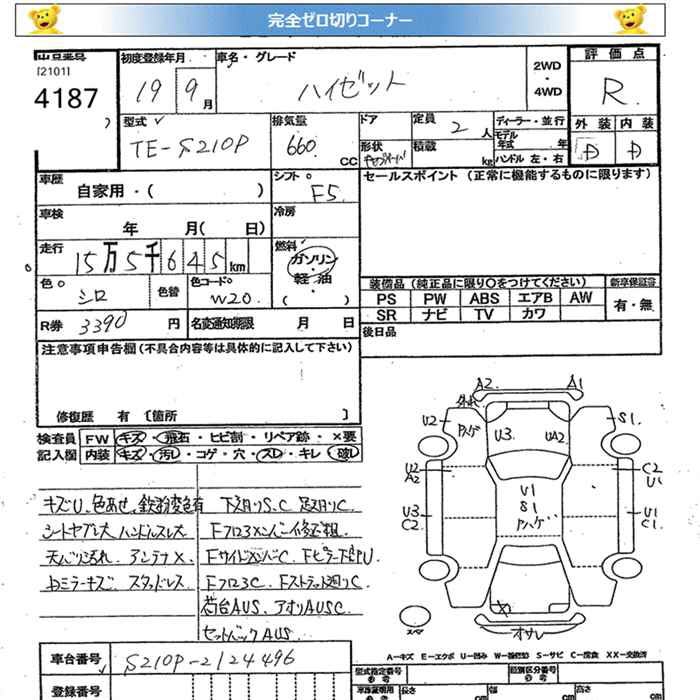 完全ゼロ切りコーナー
出品番号 初度登録年月 車名・グレード 2WD・4WD 評価点
[2101]
4187 19 9月 ハイゼット R
型式 排気量 ドア 定員 2人 ディーラー・並行 外装 内装
TE-S210P 660 CC 形状 積載 kg モデル年式 年 ハンドル 左・右 D D
車歴 自家用・( ) シフト F5 セールスポイント (正常に機能するものに限ります)
車検 年 月( 日) 冷房
走行 15万5千645km 燃料 ガソリン・軽油・( )
色 シロ 色替 色コードNo W20 装備品 (純正品に限り○をつけてください) 新車保証書
PS PW ABS エアB AW 有・無
SR ナビ TV カワ
R券 3390円 名変通知期限 月 日 後日品
注意事項申告欄 (不具合内容等は具体的に記入して下さい)
修復歴 有 〔箇所 〕
検査員 FW キズ・飛石・ヒビ割・リペア跡・×要
記入欄 内装 キズ・汚レ・コゲ・穴・スレ・キレ・破レ
キズU、色あせ、鉄粉変色有 下廻りS.C 足廻りC.
シートヤブレ大 ハンドルスレ大
天バリ汚れ、アンテナX、
スタッドレス Fフロア3C.
荷台AUS、アオリAUSC.
セットバックAUS
A2 A1
U2 S1
U3 UA2
U2 A2 C2 U1
U1 S1
U3 C2 U1 C1
スペア
A-キズ E-エクボ U-凹み W-補修跡 S-サビ C-腐食 XX-交換済
車台番号 S210P-2124496
型式指定番号 類別区分番号
登録番号 長さ cm 幅 cm 高さ cm